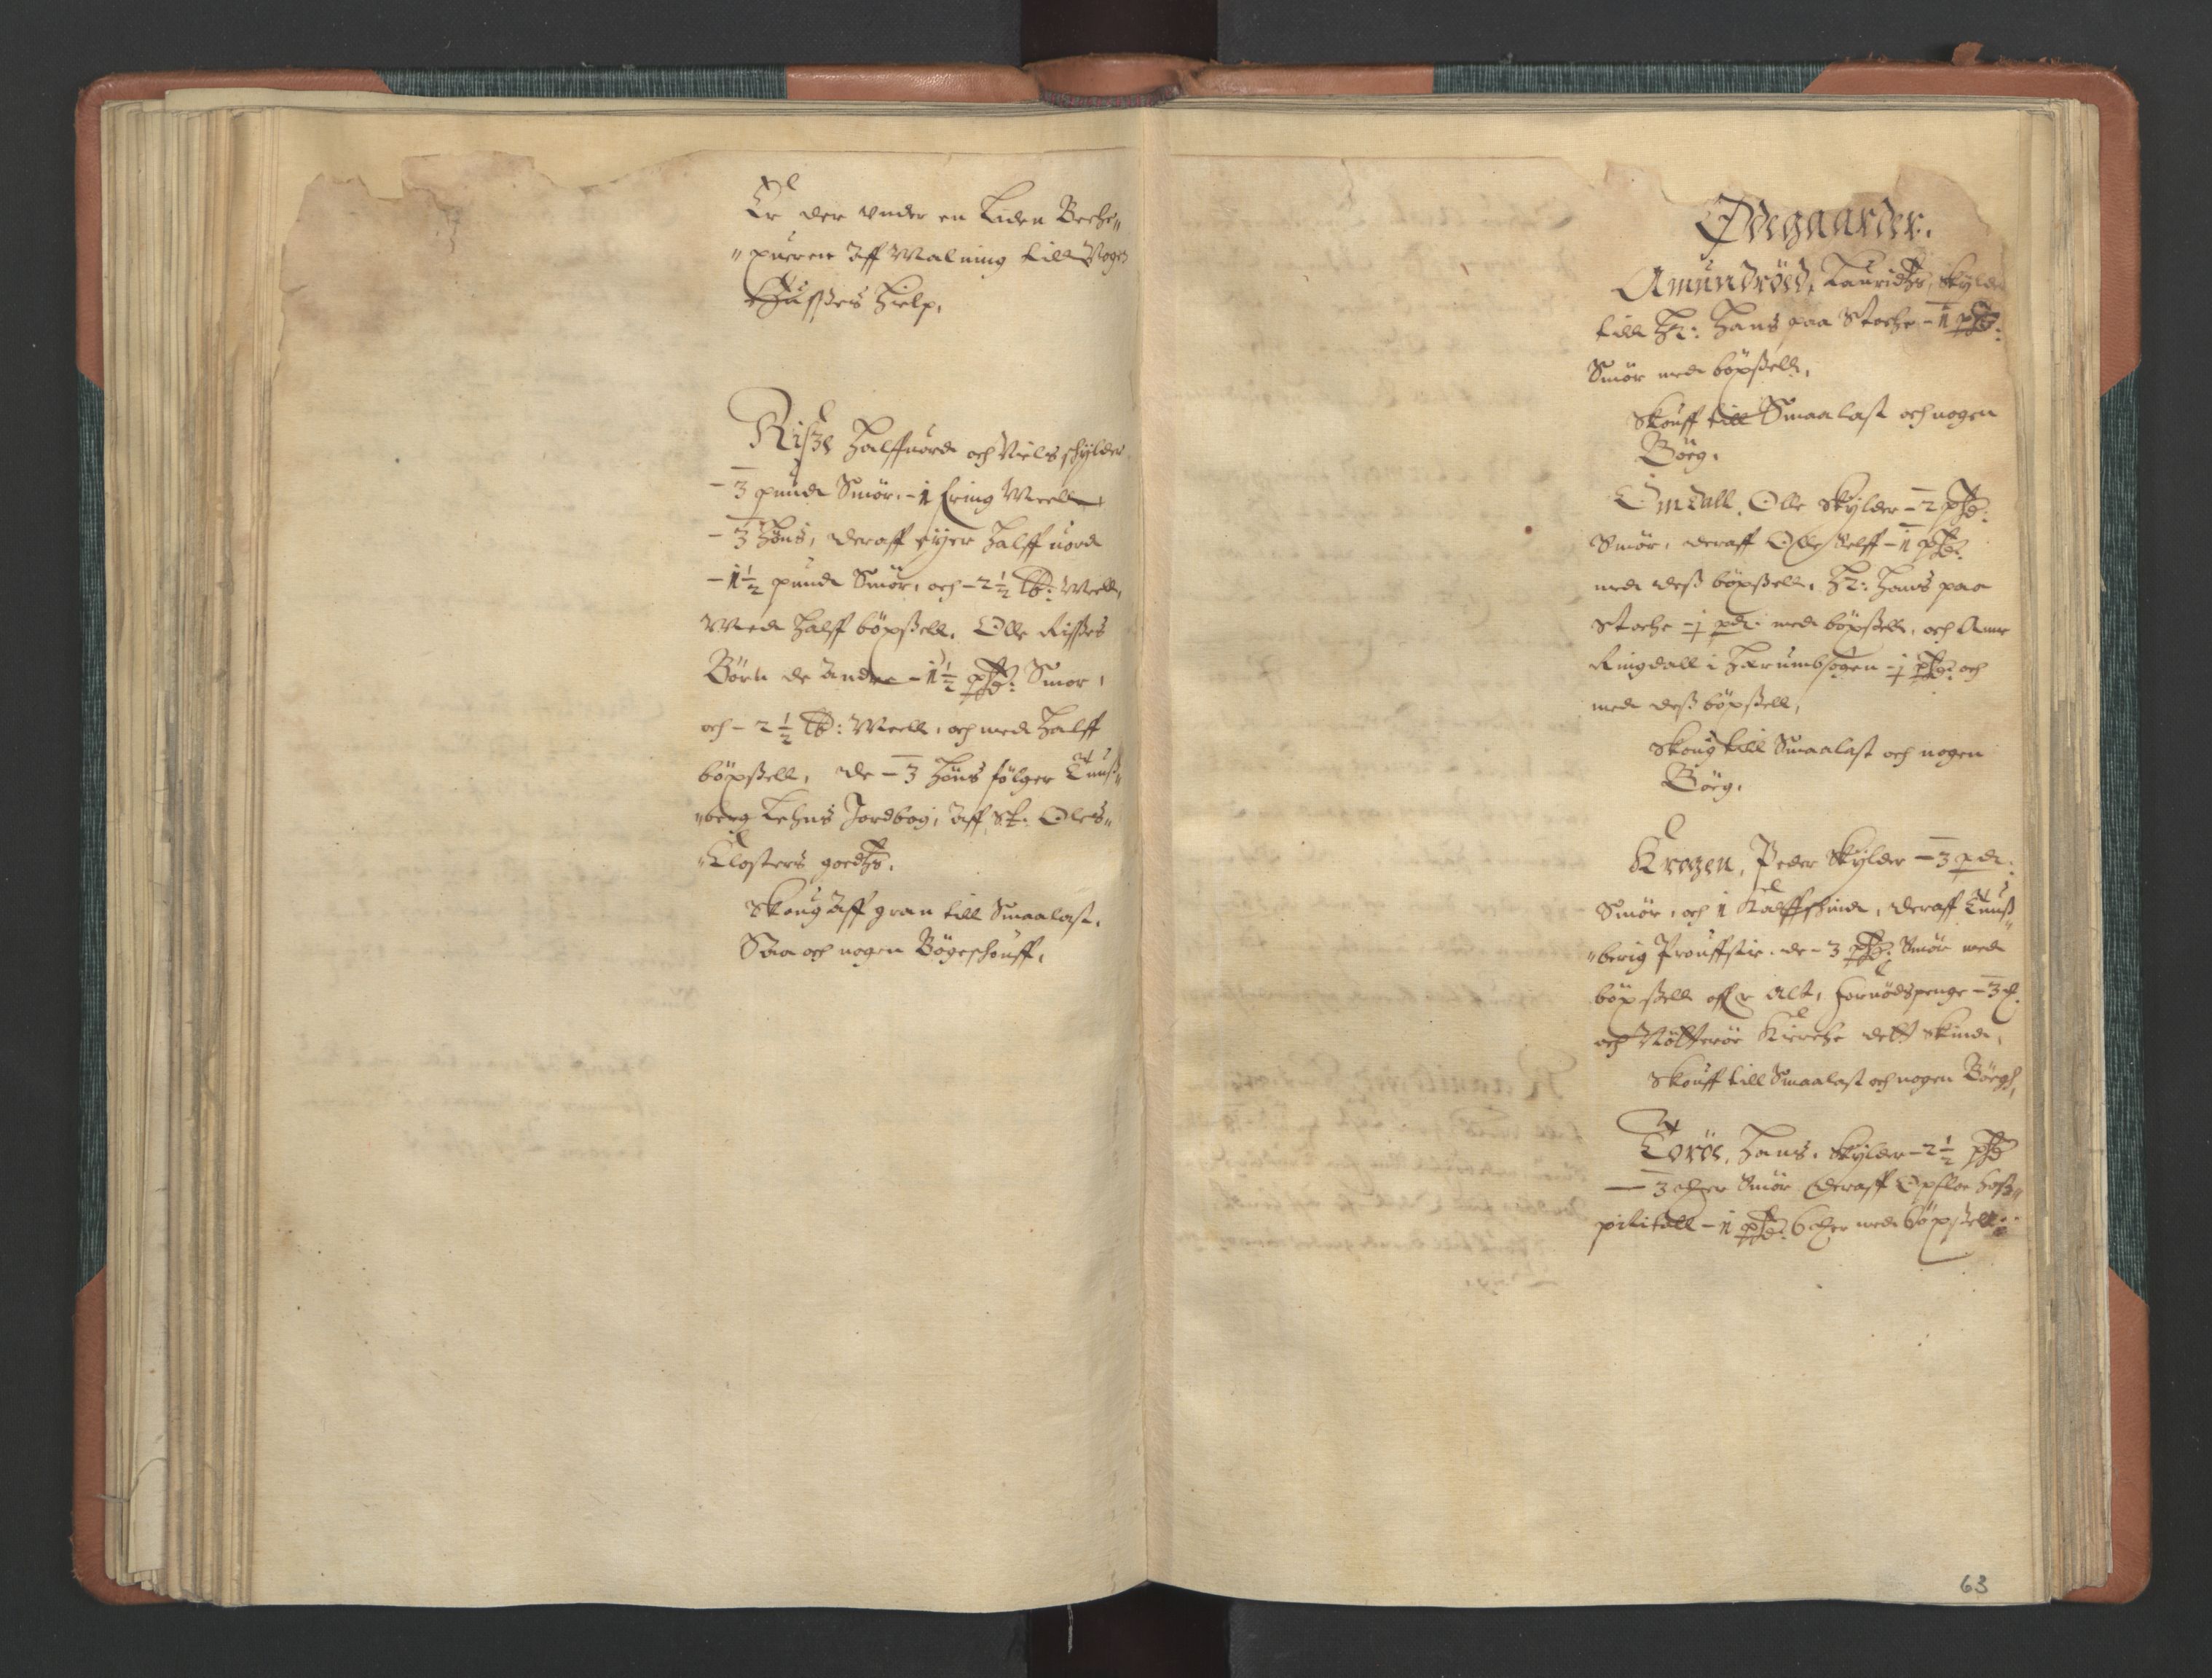 Er der under en Liden Becke„
„querne Aff Malning till Nogen
Hussens Hielp,
Riße Halffuord och Niels schylder
– 3 pundt Smør, – 1 Hring Meell
– 3 Høns, deraff eyer Halffuord
– 1½ pundt Smør, och – 2½ ℔: Meell,
Med Halff böxßell, Olle Rißes
Börn de Andre – 1½ pd: Smør,
och – 2½ ℔: Meell, och med Halff
böxßell, de – 3 Høns følger Tunß„
„berg Lehns Jordbog, Aff St: Oles„
„Closters goedtz,
Skoug Aff gran till Smaalast,
Saa och nogen Bögeschouff,
Ødegaarder.
Amundröed, Lauridtz, Skylder
till Hr: Hans paa Stocke – 1 pd:
Smör med böxßell,
Skouff till Smaalast och nogen
Böeg,
Omdall, Olle Skylder – 2 pd:
Smør, deraff Olle Selff – 1 pd:
med deß böxßell, Hr: Hans paa
Stocke – j pd: med böxßell, och Anne
Ringdall i Hærumbsogen – j pd: och
med deß böxßell,
Skoug till Smaalast och nogen
Böeg,
Kragen, Peder Skylder – 3 pd:
Smör, och 1 Kalffskind, deraff Tunß„
„berig Prouffstie de – 3 pd: Smör med
böxßell offr Alt, Fornödspenge – 3 ß
och Nötterör Kircke dett Skind,
Skouff till Smaalast och nogen Böegh,
Toröe, Hans, Skylder – 2½ pd
– 3 mker Smør deraff Opsloe Hoß„
pititall – 1 pd: 6 mker med böxßell:
63